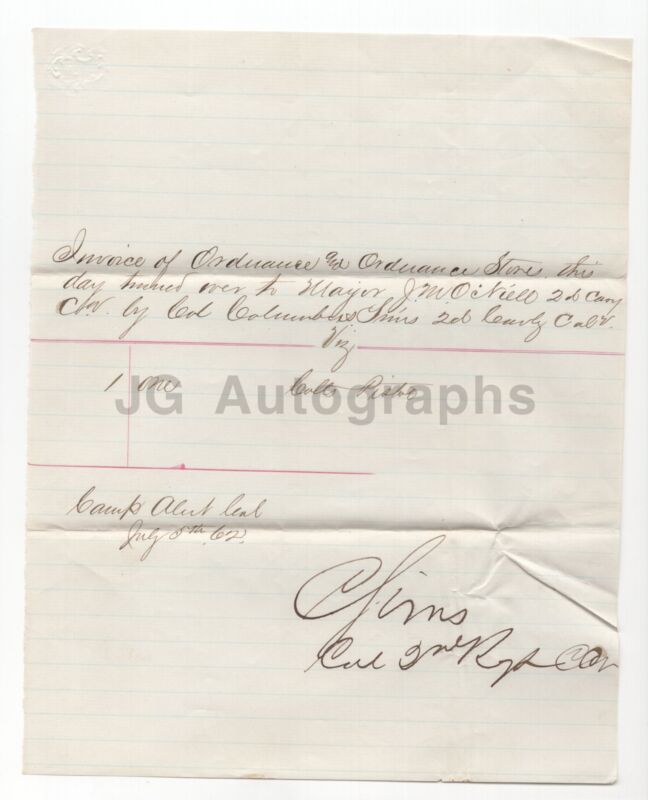 Invoice of Ordnance and Ordnance Stores this
day turned over to Major J. M. O'Niell 2d Cavy
C.V. by Col Columbus Sims 2d Cavly Cal V.
Viz
1 One Colts Pistol
JG Autographs
Camp Alert Cal
July 5th 62
C Sims
Col 2nd Regt CCV